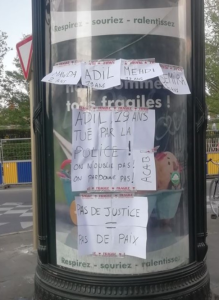 Respirez - souriez - ralentissez
ADIL
MEHDI
tous fragiles !
ADIL, 29 ANS
TUÉ PAR LA
POLICE !
ON OUBLIE PAS !
ON PARDONNE PAS !
ACAB
PAS DE JUSTICE
=
PAS DE PAIX
Respirez - souriez - ralentissez